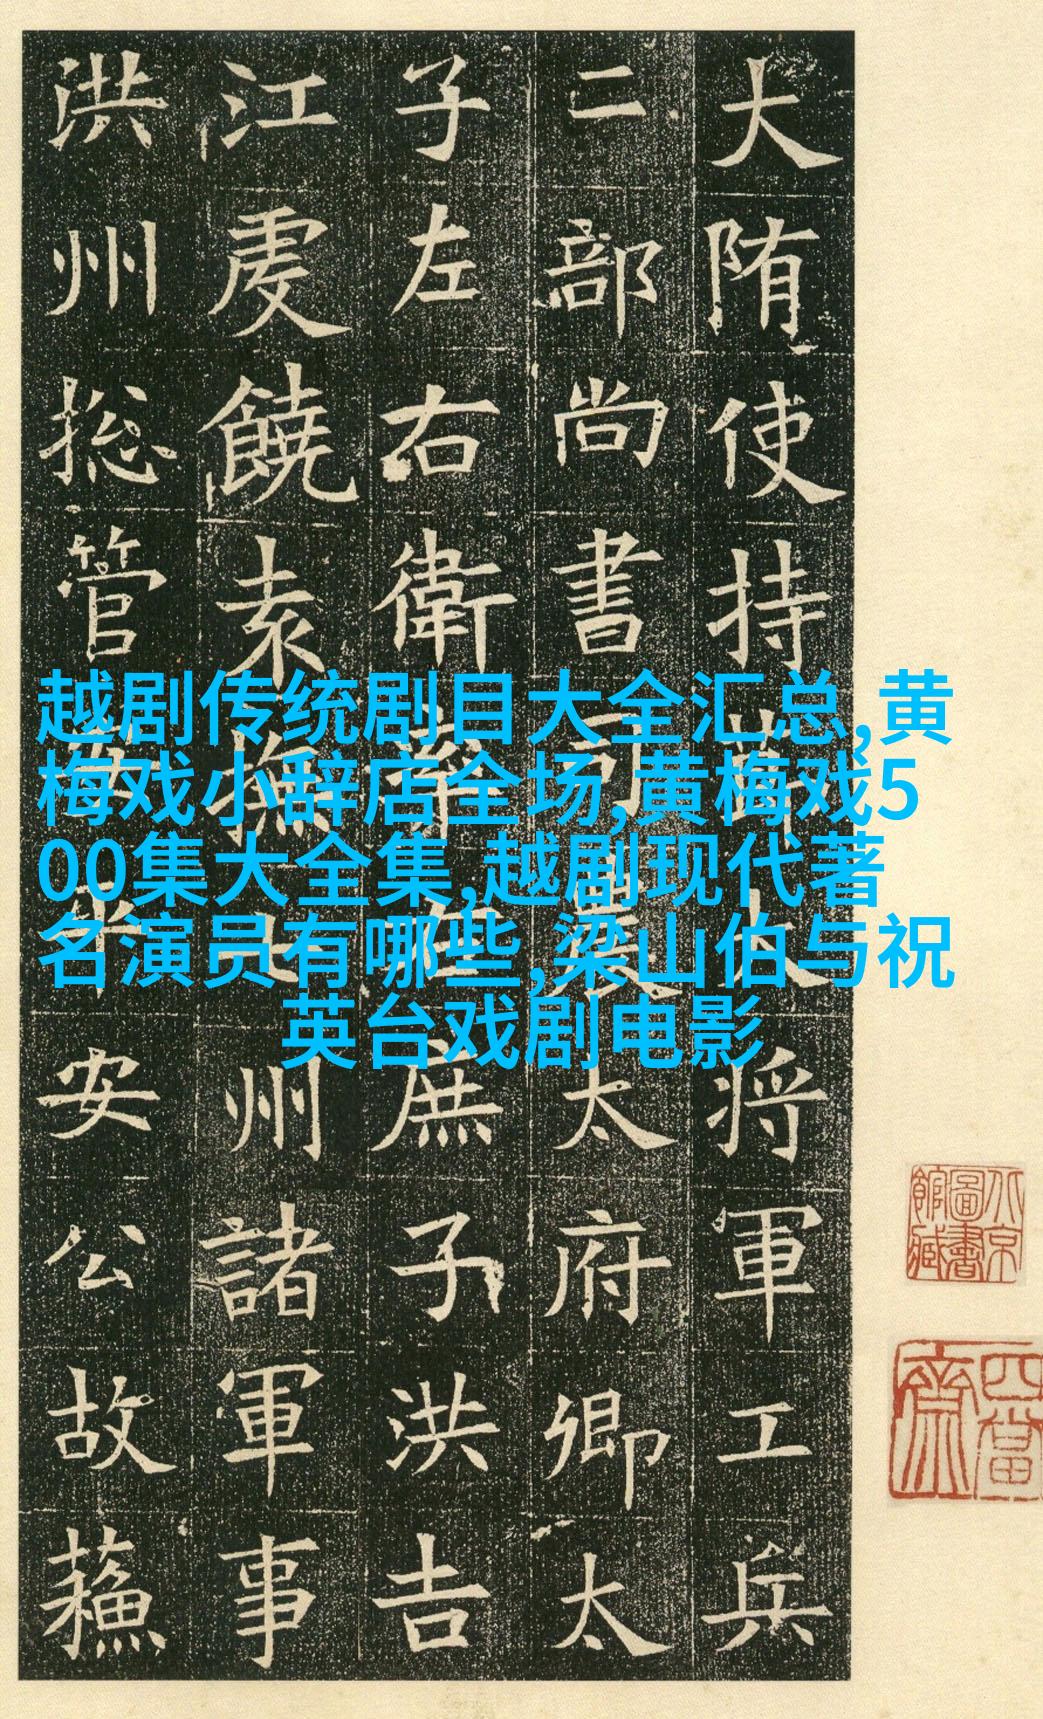 大陏使持莭大将軍工兵
二部尚書司農太府卿太
子左右衛率右庶子洪吉
江虔饒袁撫七州諸軍事
洪州捴管安平安公故蘓
越剧传统剧目大全汇总,黄
梅戏小辞店全场,黄梅戏5
00集大全集,越剧现代著
名演员有哪些,梁山伯与祝
英台戏剧电影
北京圖書館藏
四當齋